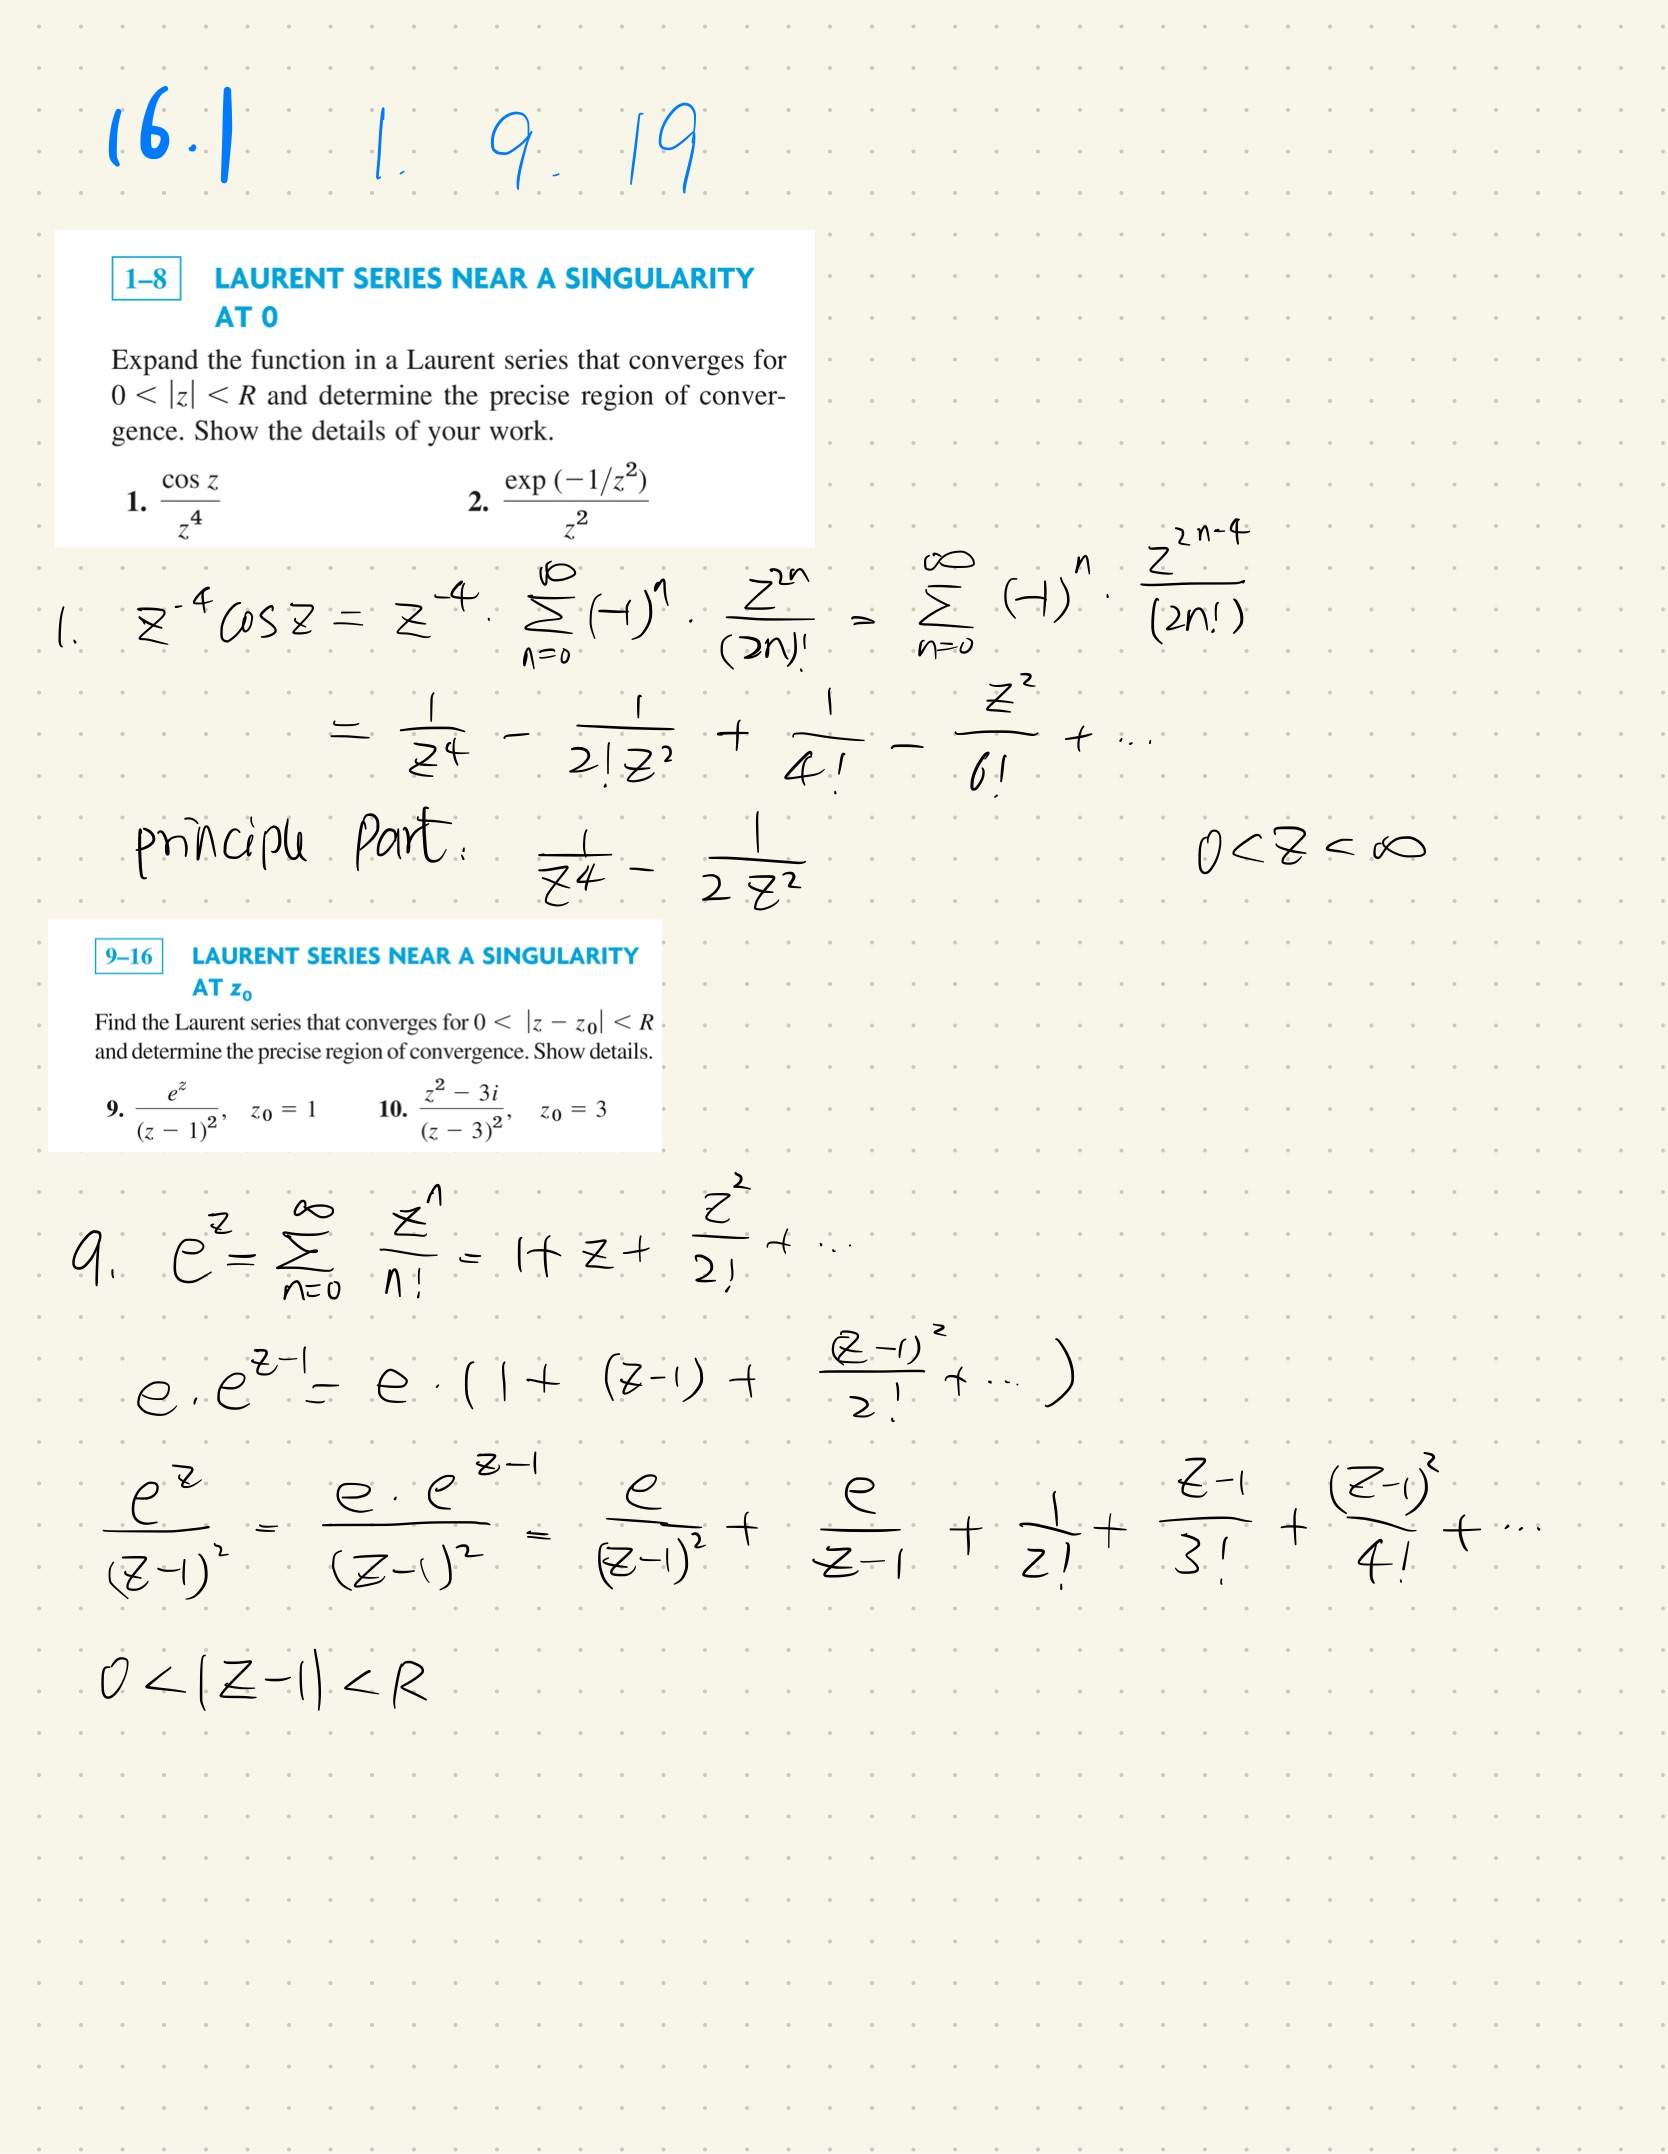 16.1 1. 9. 19
1–8 LAURENT SERIES NEAR A SINGULARITY
AT 0
Expand the function in a Laurent series that converges for
0 < |z| < R and determine the precise region of conver-
gence. Show the details of your work.
1. cos z / z^4 2. exp (−1/z^2) / z^2
1. z^-4 cos z = z^-4 · ∑_{n=0}^{∞} (-1)^n · z^{2n} / (2n)! = ∑_{n=0}^{∞} (-1)^n · z^{2n-4} / (2n!)
= 1/z^4 - 1/(2! z^2) + 1/4! - z^2/6! + ...
principle part: 1/z^4 - 1/(2z^2) 0 < z < ∞
9–16 LAURENT SERIES NEAR A SINGULARITY
AT z_0
Find the Laurent series that converges for 0 < |z − z_0| < R
and determine the precise region of convergence. Show details.
9. e^z / (z − 1)^2, z_0 = 1 10. z^2 − 3i / (z − 3)^2, z_0 = 3
9. e^z = ∑_{n=0}^{∞} z^n / n! = 1 + z + z^2/2! + ...
e · e^{z-1} = e · (1 + (z-1) + (z-1)^2/2! + ...)
e^z/(z-1)^2 = e · e^{z-1}/(z-1)^2 = e/(z-1)^2 + e/(z-1) + 1/2! + (z-1)/3! + (z-1)^2/4! + ...
0 < |z-1| < R